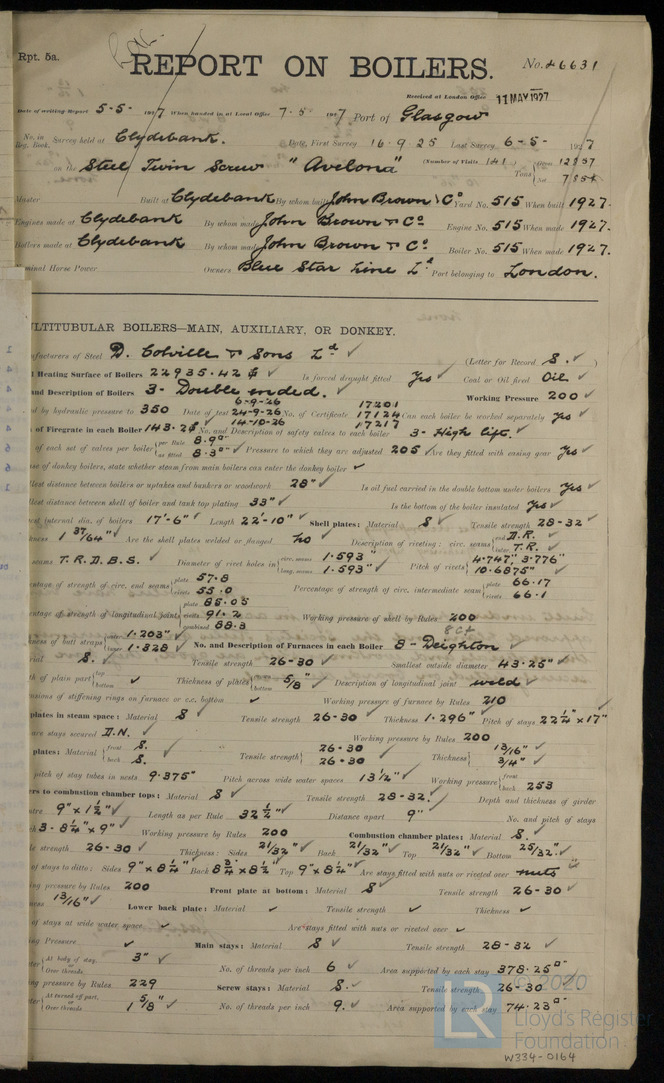 Rpt. 5a.
REPORT ON BOILERS.
No. 46631
Received at London Office 11 MAY 1927
Date of writing Report 5-5- 1927 When handed in at Local Office 7-5- 1927 Port of Glasgow
No. in Reg. Book. Survey held at Clydebank. Date, First Survey 16-9-25 Last Survey 6-5- 1927
on the Steel Twin Screw "Avelona" (Number of Visits 141) Tons
Master Built at Clydebank By whom built John Brown & Co Yard No. 515 When built 1927.
Engines made at Clydebank By whom made John Brown & Co Engine No. 515 When made 1927.
Boilers made at Clydebank By whom made John Brown & Co Boiler No. 515 When made 1927.
Nominal Horse Power Owners Blue Star Line Ld Port belonging to London.
MULTITUBULAR BOILERS—MAIN, AUXILIARY, OR DONKEY.
Manufacturers of Steel D. Colville & Sons Ld ✓ (Letter for Record S. ✓)
Heating Surface of Boilers 22935.42 Is forced draught fitted Yes ✓ Coal or Oil fired Oil ✓
and Description of Boilers 3- Double ended. Working Pressure 200 ✓
6-9-26 17201
by hydraulic pressure to 350 Date of test 24-9-26 No. of Certificate 17124 Can each boiler be worked separately Yes ✓
14-10-26 17217
of Firegrate in each Boiler 143.2 No. and Description of safety valves to each boiler 3- High lift. ✓
of each set of valves per boiler per Rule 8.9 as fitted 8.3 Pressure to which they are adjusted 205 ✓ Are they fitted with easing gear Yes ✓
of donkey boilers, state whether steam from main boilers can enter the donkey boiler ✓
distance between boilers or uptakes and bunkers or woodwork 28" ✓ Is oil fuel carried in the double bottom under boilers Yes ✓
distance between shell of boiler and tank top plating 33" ✓ Is the bottom of the boiler insulated Yes ✓
internal dia. of boilers 17'-6" ✓ Length 22'-10" ✓ Shell plates: Material S ✓ Tensile strength 28-32 ✓
1 37/64" ✓ Are the shell plates welded or flanged no ✓ Description of riveting: circ. seams end D.R. ✓ inter. T.R. ✓
seams T.R.D.B.S. ✓ Diameter of rivet holes in circ. seams 1.593" long. seams 1.593" ✓ Pitch of rivets 4.747" 3.776" 10.6875" ✓
percentage of strength of circ. end seams plate 57.8 rivets 55.0 Percentage of strength of circ. intermediate seam plate 66.17 rivets 66.1
percentage of strength of longitudinal joint plate 85.05 rivets 91.2 combined 88.3 Working pressure of shell by Rules 200
of butt straps outer 1.203" ✓ inner 1.328 ✓ No. and Description of Furnaces in each Boiler 8- Deighton ✓
S. ✓ Tensile strength 26-30 ✓ Smallest outside diameter 43.25" ✓
of plain part top bottom ✓ Thickness of plates bottom 5/8" ✓ Description of longitudinal joint weld ✓
Dimensions of stiffening rings on furnace or c.c. bottom ✓ Working pressure of furnace by Rules 210
plates in steam space: Material S ✓ Tensile strength 26-30 ✓ Thickness 1.296" ✓ Pitch of stays 22 1/4" x 17"
are stays secured D.N. ✓ Working pressure by Rules 200
plates: Material front S. back S. ✓ Tensile strength 26-30 26-30 ✓ Thickness 13/16" 3/4" ✓
pitch of stay tubes in nests 9.375" Pitch across wide water spaces 13 1/2" ✓ Working pressure front back 253
to combustion chamber tops: Material S ✓ Tensile strength 28-32. ✓ Depth and thickness of girder
centre 9" x 1 1/2" ✓ Length as per Rule 32 1/2" ✓ Distance apart 9" ✓ No. and pitch of stays
3- 8 1/4" x 9" ✓ Working pressure by Rules 200 Combustion chamber plates: Material S. ✓
strength 26-30 ✓ Thickness: Sides 21/32" ✓ Back 21/32" ✓ Top 21/32" ✓ Bottom 25/32" ✓
of stays to ditto: Sides 9" x 8 1/4" Back 8 3/4" x 8 1/2" Top 9" x 8 1/4" ✓ Are stays fitted with nuts or riveted over nuts ✓
pressure by Rules 200 Front plate at bottom: Material S ✓ Tensile strength 26-30 ✓
13/16" ✓ Lower back plate: Material ✓ Tensile strength ✓ Thickness ✓
of stays at wide water space ✓ Are stays fitted with nuts or riveted over ✓
Pressure ✓ Main stays: Material S ✓ Tensile strength 28-32 ✓
At body of stay, Over threads. 3" ✓ No. of threads per inch 6 ✓ Area supported by each stay 378.25 ✓
pressure by Rules 229 Screw stays: Material S. ✓ Tensile strength 26-30 ✓
At turned off part, Over threads 1 5/8" ✓ No. of threads per inch 9. ✓ Area supported by each stay 74.23
© 2020
LR
Lloyd's Register
Foundation
W334-0164